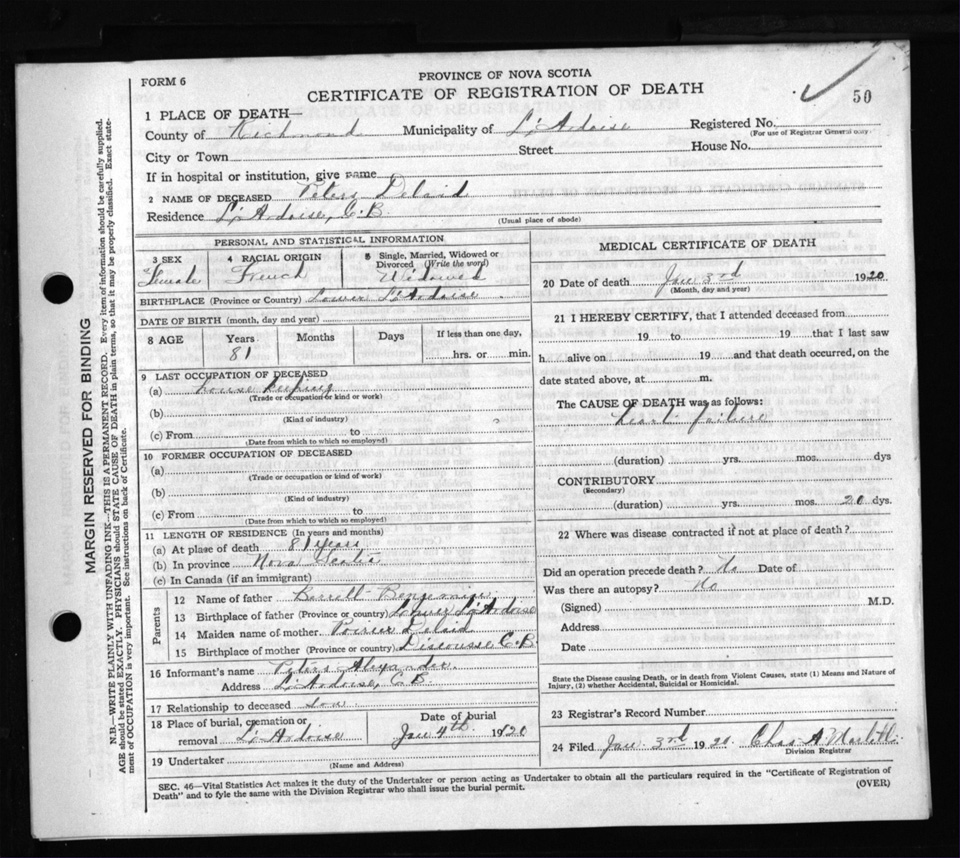 FORM 6
PROVINCE OF NOVA SCOTIA
CERTIFICATE OF REGISTRATION OF DEATH
50
1 PLACE OF DEATH—
County of Richmond Municipality of L'Ardoise Registered No.
(For use of Registrar General only)
City or Town Street House No.
If in hospital or institution, give name
2 NAME OF DECEASED Peters Delaid
Residence L'Ardoise, C.B
(Usual place of abode)
PERSONAL AND STATISTICAL INFORMATION
3 SEX 4 RACIAL ORIGIN 5 Single, Married, Widowed or Divorced (Write the word)
Female French Widowed
BIRTHPLACE (Province or Country) Lower L'Ardoise
DATE OF BIRTH (month, day and year)
8 AGE Years Months Days If less than one day,
81 hrs. or min.
9 LAST OCCUPATION OF DECEASED
(a) house keeping
(Trade or occupation or kind or work)
(b)
(Kind of industry)
(c) From to
(Date from which to which so employed)
10 FORMER OCCUPATION OF DECEASED
(a)
(Trade or occupation or kind of work)
(b)
(Kind of industry)
(c) From to
(Date from which to which so employed)
11 LENGTH OF RESIDENCE (In years and months)
(a) At place of death 81 years
(b) In province Nova Scotia
(c) In Canada (if an immigrant)
Parents
12 Name of father Benjemin
13 Birthplace of father (Province or country) Lower L'Ardoise
14 Maiden name of mother Poirier Delaid
15 Birthplace of mother (Province or country) Discousse C.B
16 Informant's name Peters Alexander
Address L'Ardoise, C B
17 Relationship to deceased Son
18 Place of burial, cremation or removal L'Ardoise
Date of burial Jan 4th 1920
19 Undertaker
(Name and Address)
MEDICAL CERTIFICATE OF DEATH
20 Date of death Jan 3rd 1920
(Month, day and year)
21 I HEREBY CERTIFY, that I attended deceased from
19 to 19 that I last saw
h alive on 19 and that death occurred, on the
date stated above, at m.
The CAUSE OF DEATH was as follows:
heart failure
(duration) yrs. mos. dys
CONTRIBUTORY
(Secondary)
(duration) yrs. mos. 20 dys.
22 Where was disease contracted if not at place of death?
Did an operation precede death? No Date of
Was there an autopsy? No
(Signed) M.D.
Address
Date
State the Disease causing Death, or in death from Violent Causes, state (1) Means and Nature of
Injury, (2) whether Accidental, Suicidal or Homicidal.
23 Registrar's Record Number
24 Filed Jan 3rd 1920 Chas A
Division Registrar
SEC. 46—Vital Statistics Act makes it the duty of the Undertaker or person acting as Undertaker to obtain all the particulars required in the "Certificate of Registration of
Death" and to fyle the same with the Division Registrar who shall issue the burial permit.
(OVER)
MARGIN RESERVED FOR BINDING
N.B.—WRITE PLAINLY WITH UNFADING INK—THIS IS A PERMANENT RECORD. Every item of information should be carefully supplied.
AGE should be stated EXACTLY. PHYSICIANS should STATE CAUSE OF DEATH in plain terms, so that it may be properly classified. Exact state-
ment of OCCUPATION is very important. See instructions on back of Certificate.